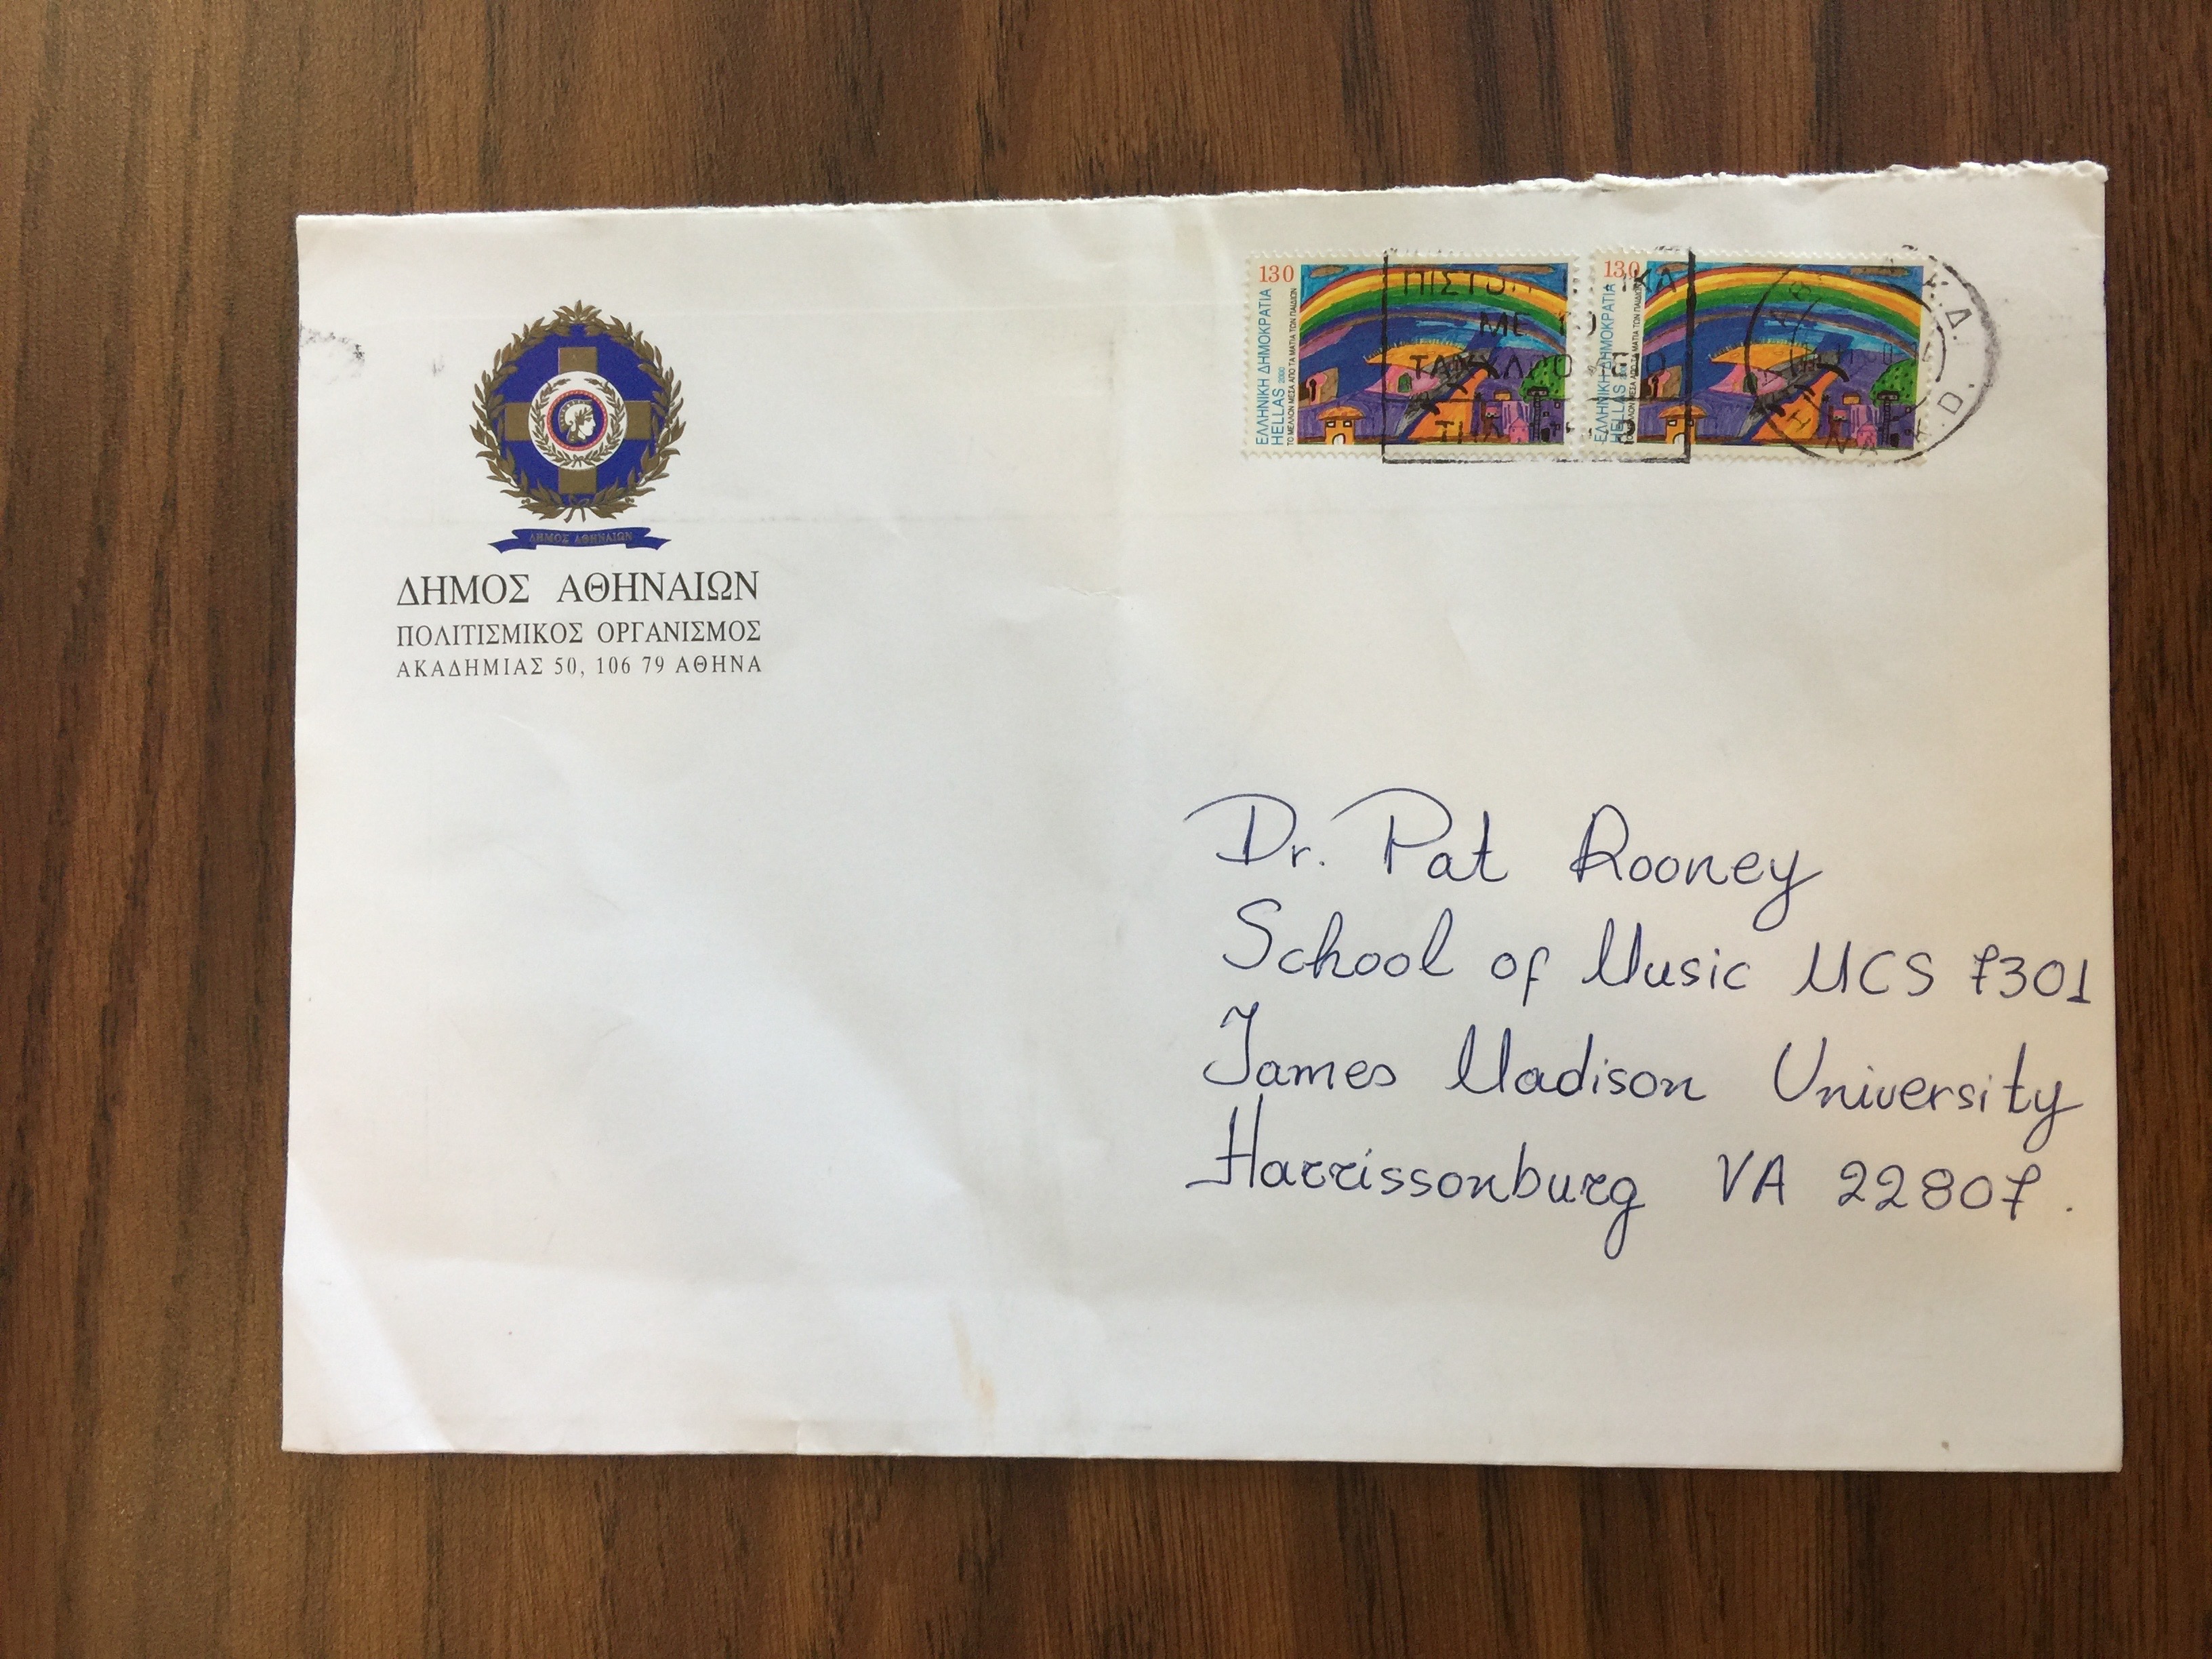 ΔΗΜΟΣ ΑΘΗΝΑΙΩΝ
ΔΗΜΟΣ ΑΘΗΝΑΙΩΝ
ΠΟΛΙΤΙΣΜΙΚΟΣ ΟΡΓΑΝΙΣΜΟΣ
ΑΚΑΔΗΜΙΑΣ 50, 106 79 ΑΘΗΝΑ
130
ΕΛΛΗΝΙΚΗ ΔΗΜΟΚΡΑΤΙΑ
HELLAS 2000
ΤΟ ΜΕΛΛΟΝ ΜΕΣΑ ΑΠΟ ΤΑ ΜΑΤΙΑ ΤΩΝ ΠΑΙΔΙΩΝ
130
ΕΛΛΗΝΙΚΗ ΔΗΜΟΚΡΑΤΙΑ
HELLAS
ΤΟ ΜΕΛΛΟΝ ΜΕΣΑ ΑΠΟ ΤΑ ΜΑΤΙΑ ΤΩΝ ΠΑΙΔΙΩΝ
ΜΕ
Dr. Pat Rooney
School of Music MCS 7301
James Madison University
Harrissonburg VA 22807.